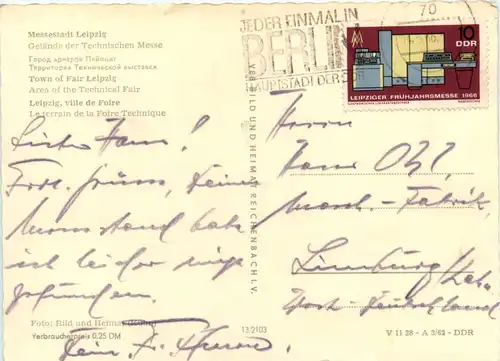 Messestadt Leipzig
Gelände der Technischen Messe
Территория Технической выставки
Town of Fair Leipzig
Area of the Technical Fair
Leipzig, ville de Foire
Le terrain de la Foire Technique
JEDER EINMAL IN
BERLIN
HAUPTSTADT DER
70
10
DDR
LEIPZIGER FRÜHJAHRSMESSE 1966
VERLAG BILD UND HEIMAT REICHENBACH I. V.
Lieber Hans!
Frdl. Grüsse, Deinen
Messestand habe
ich leider nicht
gefunden.
Dein
Herrn
Hans Ohl,
Masch.-Fabrik,
Limburg/Lahn
West-Deutschland
Foto: Bild und Heimat
Verbraucherpreis 0,25 DM
13/2103
V 11 28 - A 3/62 - DDR